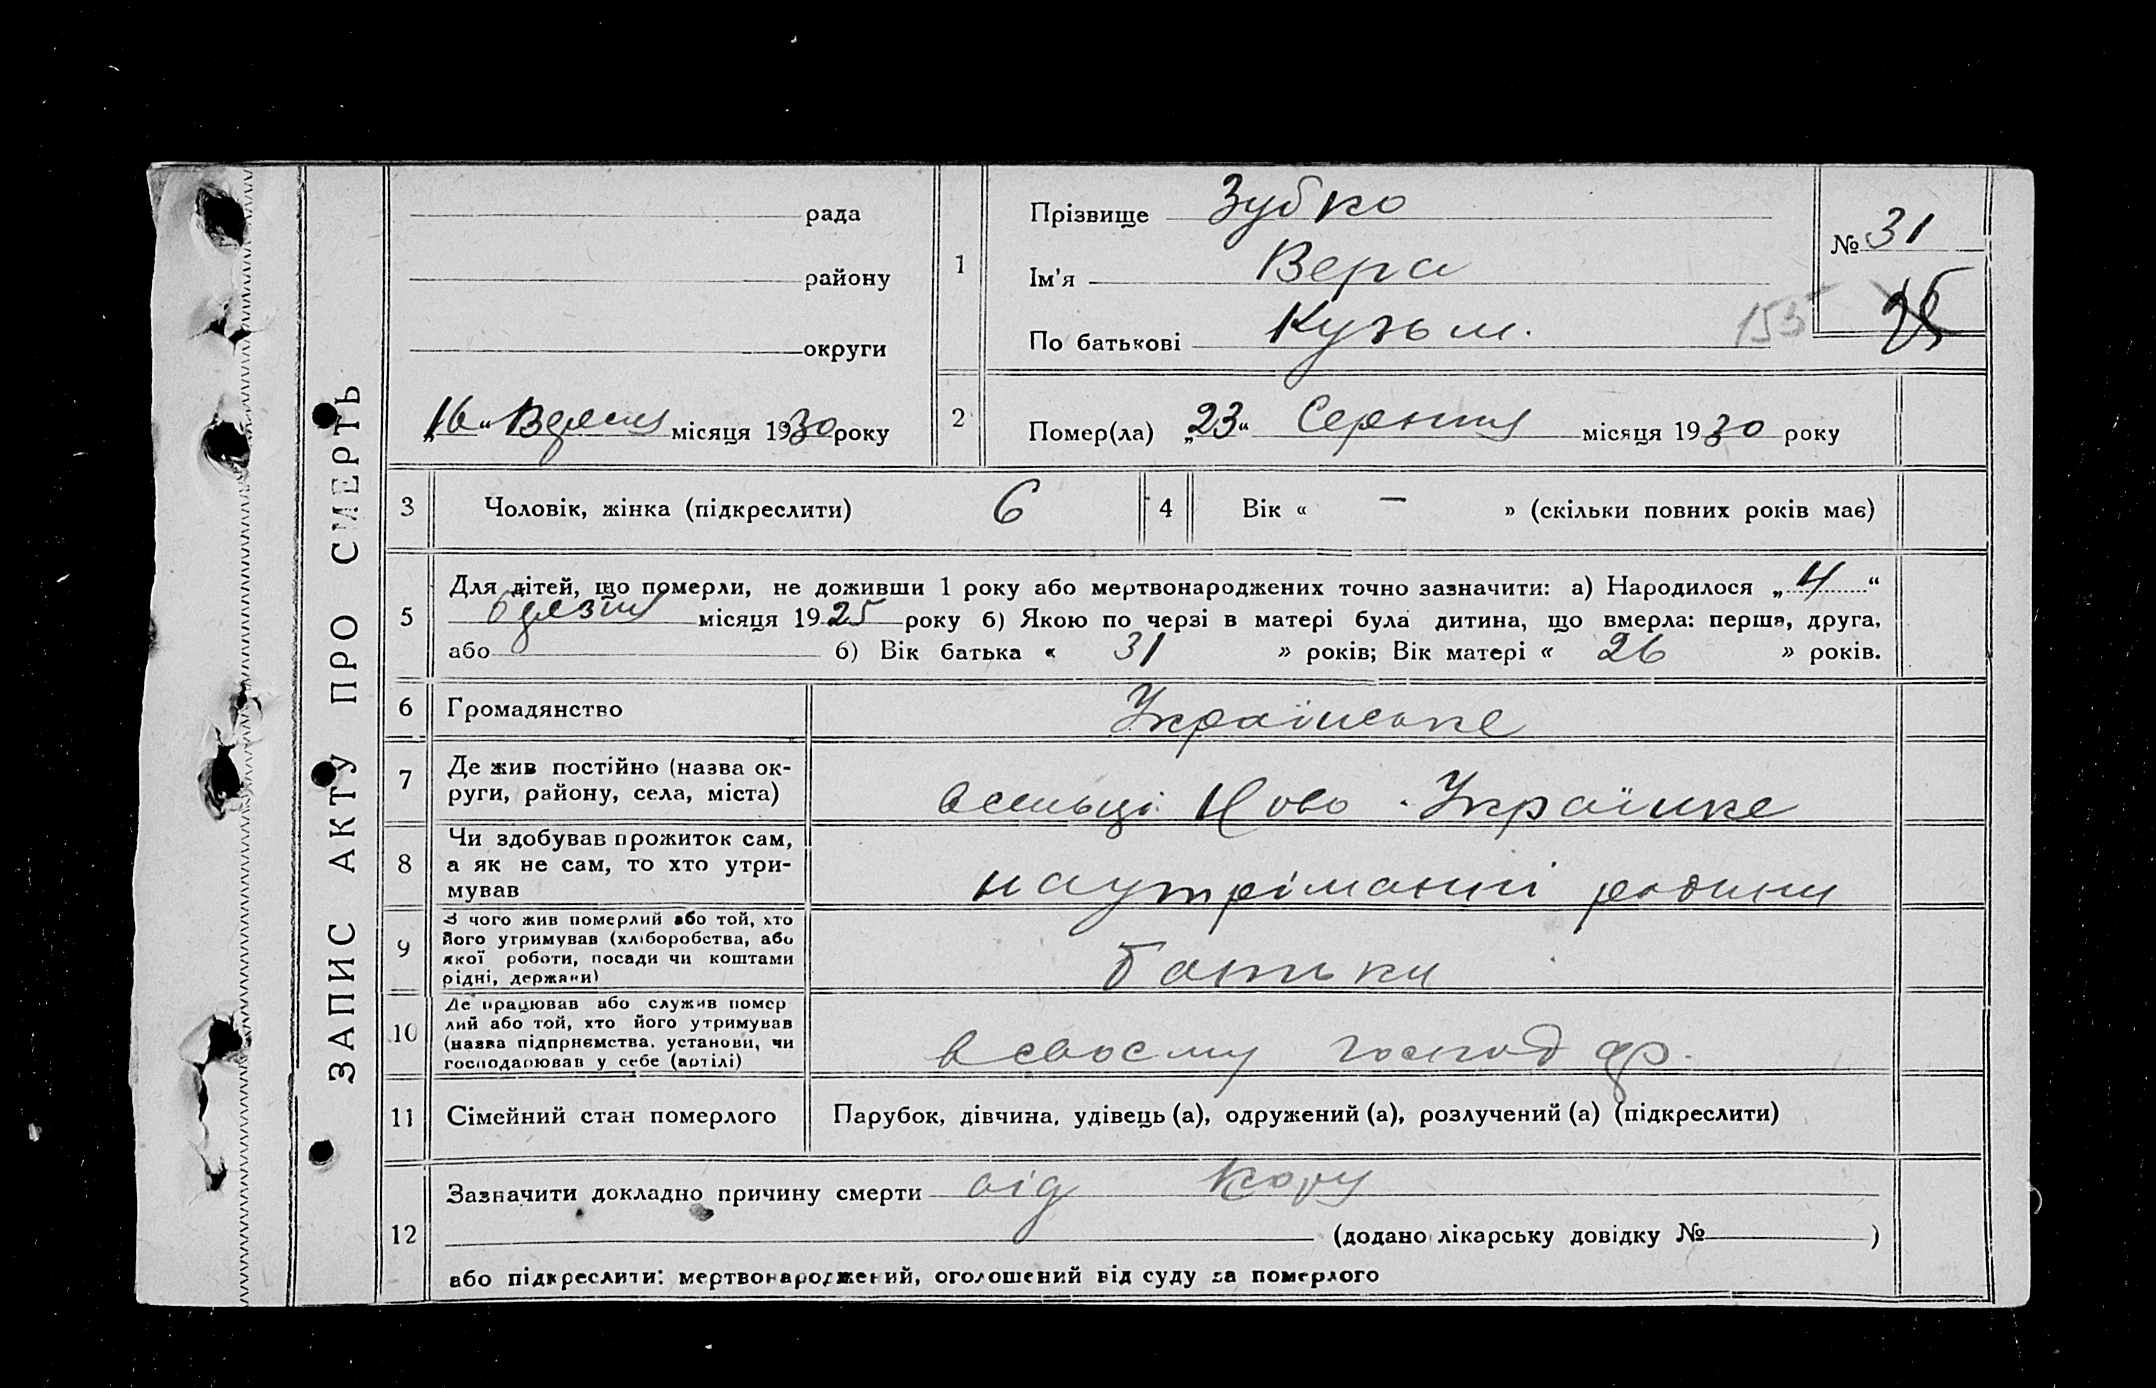 ЗАПИС АКТУ ПРО СМЕРТЬ
рада
району
округи
„16“ Вересня місяця 1930 року
1
Прізвище Зубко
Ім'я Вера
По батькові Кузьм.
№ 31
155
2
Помер(ла) „23“ Серпня місяця 1930 року
3
Чоловік, жінка (підкреслити) 6
4
Вік « – » (скільки повних років має)
5
Для дітей, що померли, не доживши 1 року або мертвонароджених точно зазначити: а) Народилося „4“
місяця 1925 року б) Якою по черзі в матері була дитина, що вмерла: перша, друга,
або б) Вік батька « 31 » років; Вік матері « 26 » років.
6
Громадянство
Українське
7
Де жив постійно (назва ок-
руги, району, села, міста)
в сельці Ново-Українке
8
Чи здобував прожиток сам,
а як не сам, то хто утри-
мував
на утріманні родини
9
З чого жив померлий або той, хто
його утримував (хліборобства, або
якої роботи, посади чи коштами
рідні, держави)
батьки
10
Де працював або служив помер
лий або той, хто його утримував
(назва підприємства, установи, чи
господарював у себе (артілі)
в своєму господ
11
Сімейний стан померлого
Парубок, дівчина, удівець (а), одружений (а), розлучений (а) (підкреслити)
12
Зазначити докладно причину смерти від кору
(додано лікарську довідку № )
або підкреслити: мертвонароджений, оголошений від суду за померлого